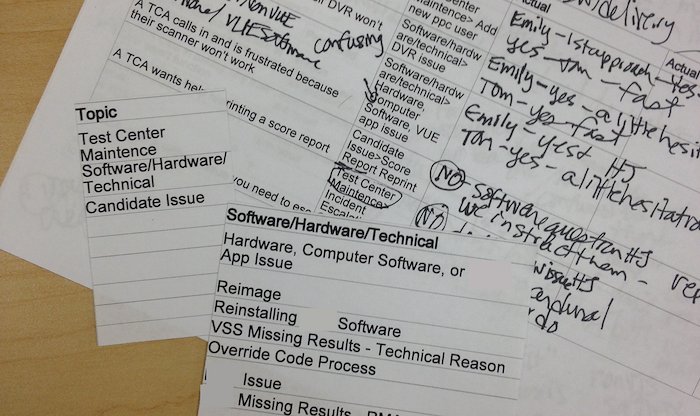 DVR won't
A TCA calls in and is frustrated because
their scanner won't work
A TCA wants
printing a score report
you need to
confusing
Maintenance> Add
new ppc user
Software/hardw
are/technical>
DVR issue
Software/hardw
are/technical>
Hardware,
Computer
Software, VUE
app issue
Candidate
Issue>Score
Report Reprint
Test Center
Maintence>
Incident
Actual
Emily - 1st approach - yes
yes - Tom - fast
Emily - yes - a little
Tom - yes - fast
Emily - yes! HJ
Tom - yes - a little hesitation
NO - software question HJ
we instruct them -
NO
Actual
Topic
Test Center
Maintence
Software/Hardware/
Technical
Candidate Issue
Software/Hardware/Technical
Hardware, Computer Software, or
App Issue
Reimage
Reinstalling Software
VSS Missing Results - Technical Reason
Override Code Process
Issue
Missing Results -